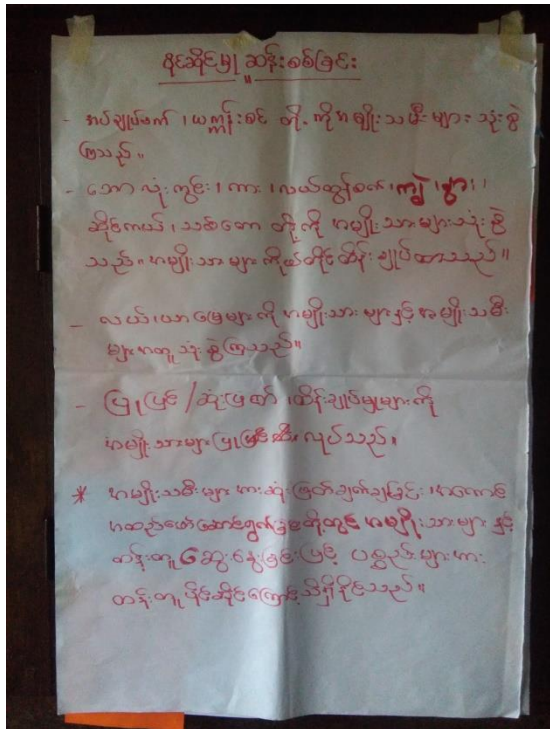 ပိုင်ဆိုင်မှု ဆန်းစစ်ခြင်း
- အပ်ချုပ်စက်၊ ယက္ကန်းစင် တို့ကို အမျိုးသမီးများ သုံးစွဲ
ကြသည်။
- ဘောလုံးကွင်း၊ ကား၊ လယ်ထွန်စက်၊ ကျွဲ၊ နွား၊
ဆိုင်ကယ်၊ သစ်တော တို့ကို အမျိုးသားများသုံးစွဲ
သည်။ အမျိုးသားများ ကိုယ်တိုင်ထိန်းချုပ်ထားသည်။
- လယ်၊ ယာမြေများကို အမျိုးသား များနှင့် အမျိုးသမီး
များ အတူသုံးစွဲကြသည်။
- ပြုပြင်/ဆုံးဖြတ်၊ ထိန်းချုပ်မှုများကို
အမျိုးသားများ ပြုလုပ်သည်။
* အမျိုးသမီးများ အားဆုံးဖြတ်ချက်ချခြင်း၊ အကောင်
အထည်ဖော်ဆောင်ရွက်ခြင်းတို့တွင် အမျိုးသားများ နှင့်
တန်းတူ ဆွေးနွေးခြင်းဖြင့် ပစ္စည်းများအား
တန်းတူ ပိုင်ဆိုင်ကြောင့်သိရှိနိုင်သည်။